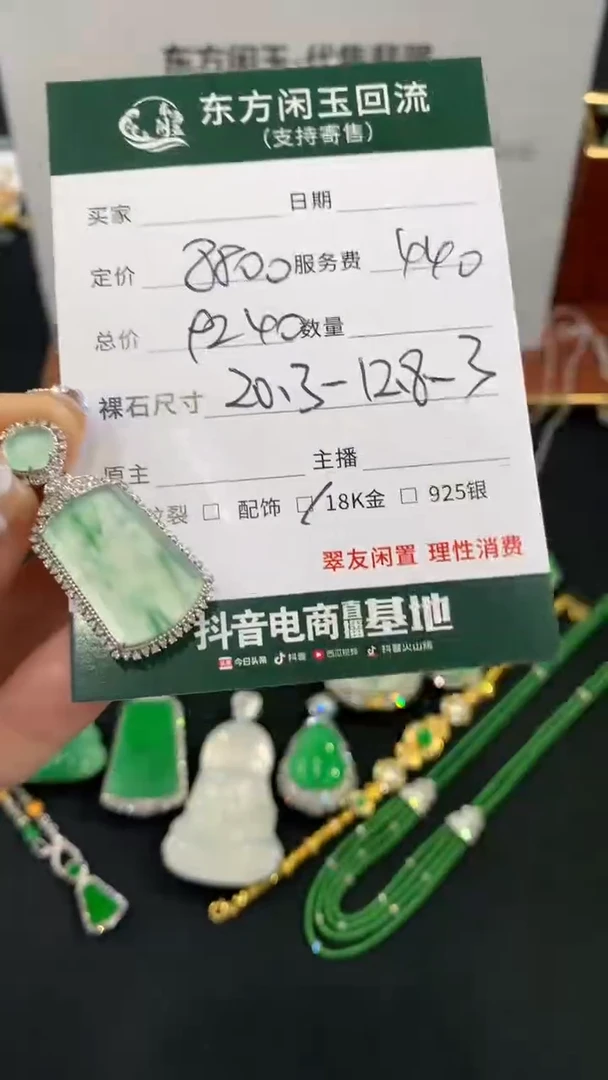 东方闲玉
东方闲玉回流
(支持寄售)
买家 日期
定价 8800 服务费 440
总价 9240 数量
裸石尺寸 20.3-12.8-3
原主 主播
纹裂 □ 配饰 ☑ 18K金 □ 925银
翠友闲置 理性消费
抖音电商直播基地
今日头条 抖音 西瓜视频 抖音火山版